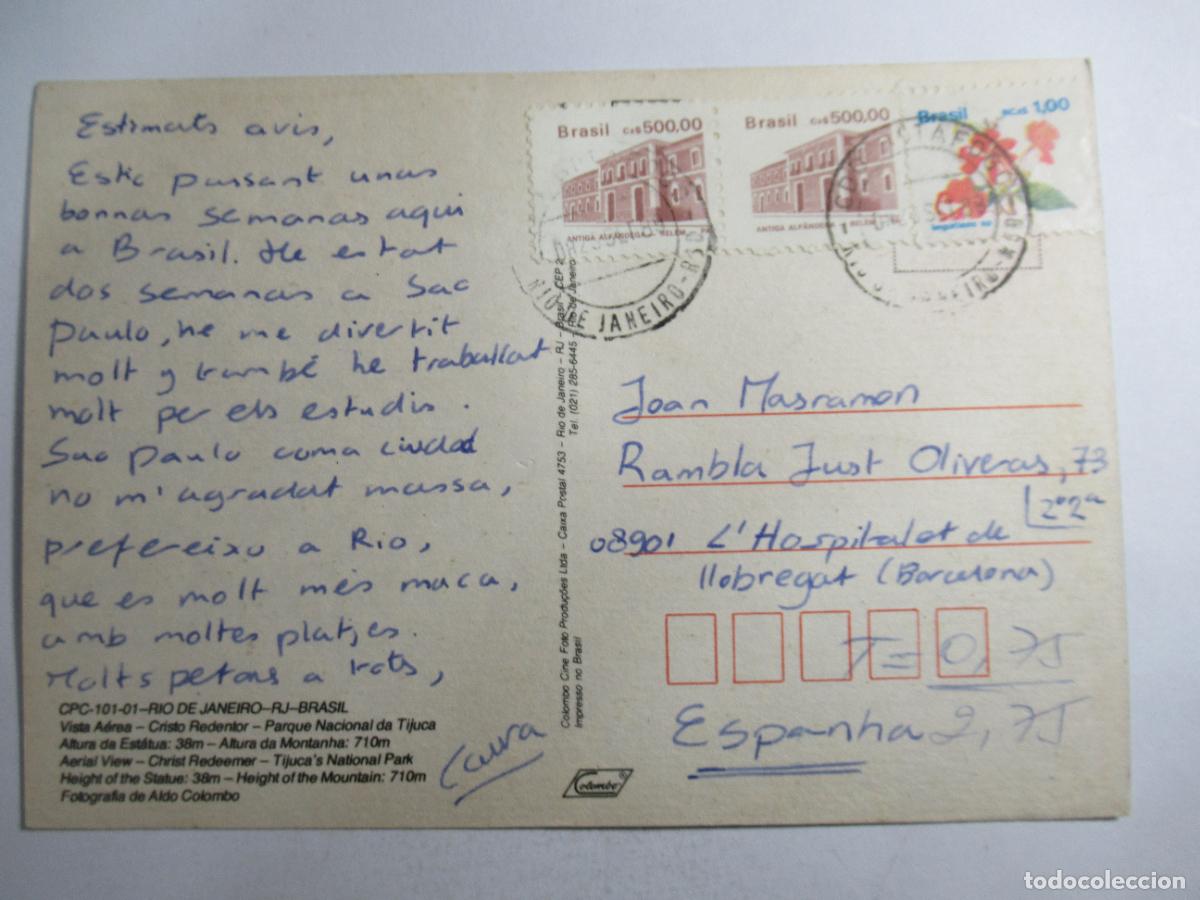 Estimats avis,
Estic passant unas
bonnas semanas aqui
a Brasil. He estat
dos semanas a Sao
Paulo, he me divertit
molt y també he traballat
molt per els estudis.
Sao Paulo coma ciudad
no m'agradat massa,
prefereixo a Rio,
que es molt més maca,
amb moltes platjes.
Molts petons a tots,
Laura
CPC-101-01–RIO DE JANEIRO–RJ–BRASIL
Vista Aérea – Cristo Redentor – Parque Nacional da Tijuca
Altura da Estátua: 38m – Altura da Montanha: 710m
Aerial View – Christ Redeemer – Tijuca's National Park
Height of the Statue: 38m – Height of the Mountain: 710m
Fotografia de Aldo Colombo
Colombo Cine Foto Produções Ltda – Caixa Postal 4753 – Rio de Janeiro – RJ – Brasil – CEP 2
Tel. (021) 285-6445 – Rio de Janeiro
Impresso no Brasil
Brasil Cz$ 500,00
ANTIGA ALFÂNDEGA - BELÉM
Brasil Cz$ 500,00
ANTIGA ALFÂNDEGA - BELÉM
Brasil NCz$ 1,00
RIO DE JANEIRO-RJ
Joan Masramon
Rambla Just Oliveras, 73
2º2ª
08901 L'Hospitalet de
llobregat (Barcelona)
T=0,75
Espanha 2,75
Colombo ®
todocoleccion